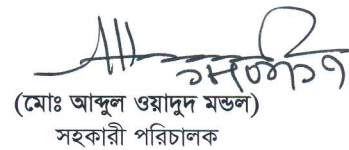 (মোঃ আব্দুল ওয়াদুদ মন্ডল)
সহকারী পরিচালক